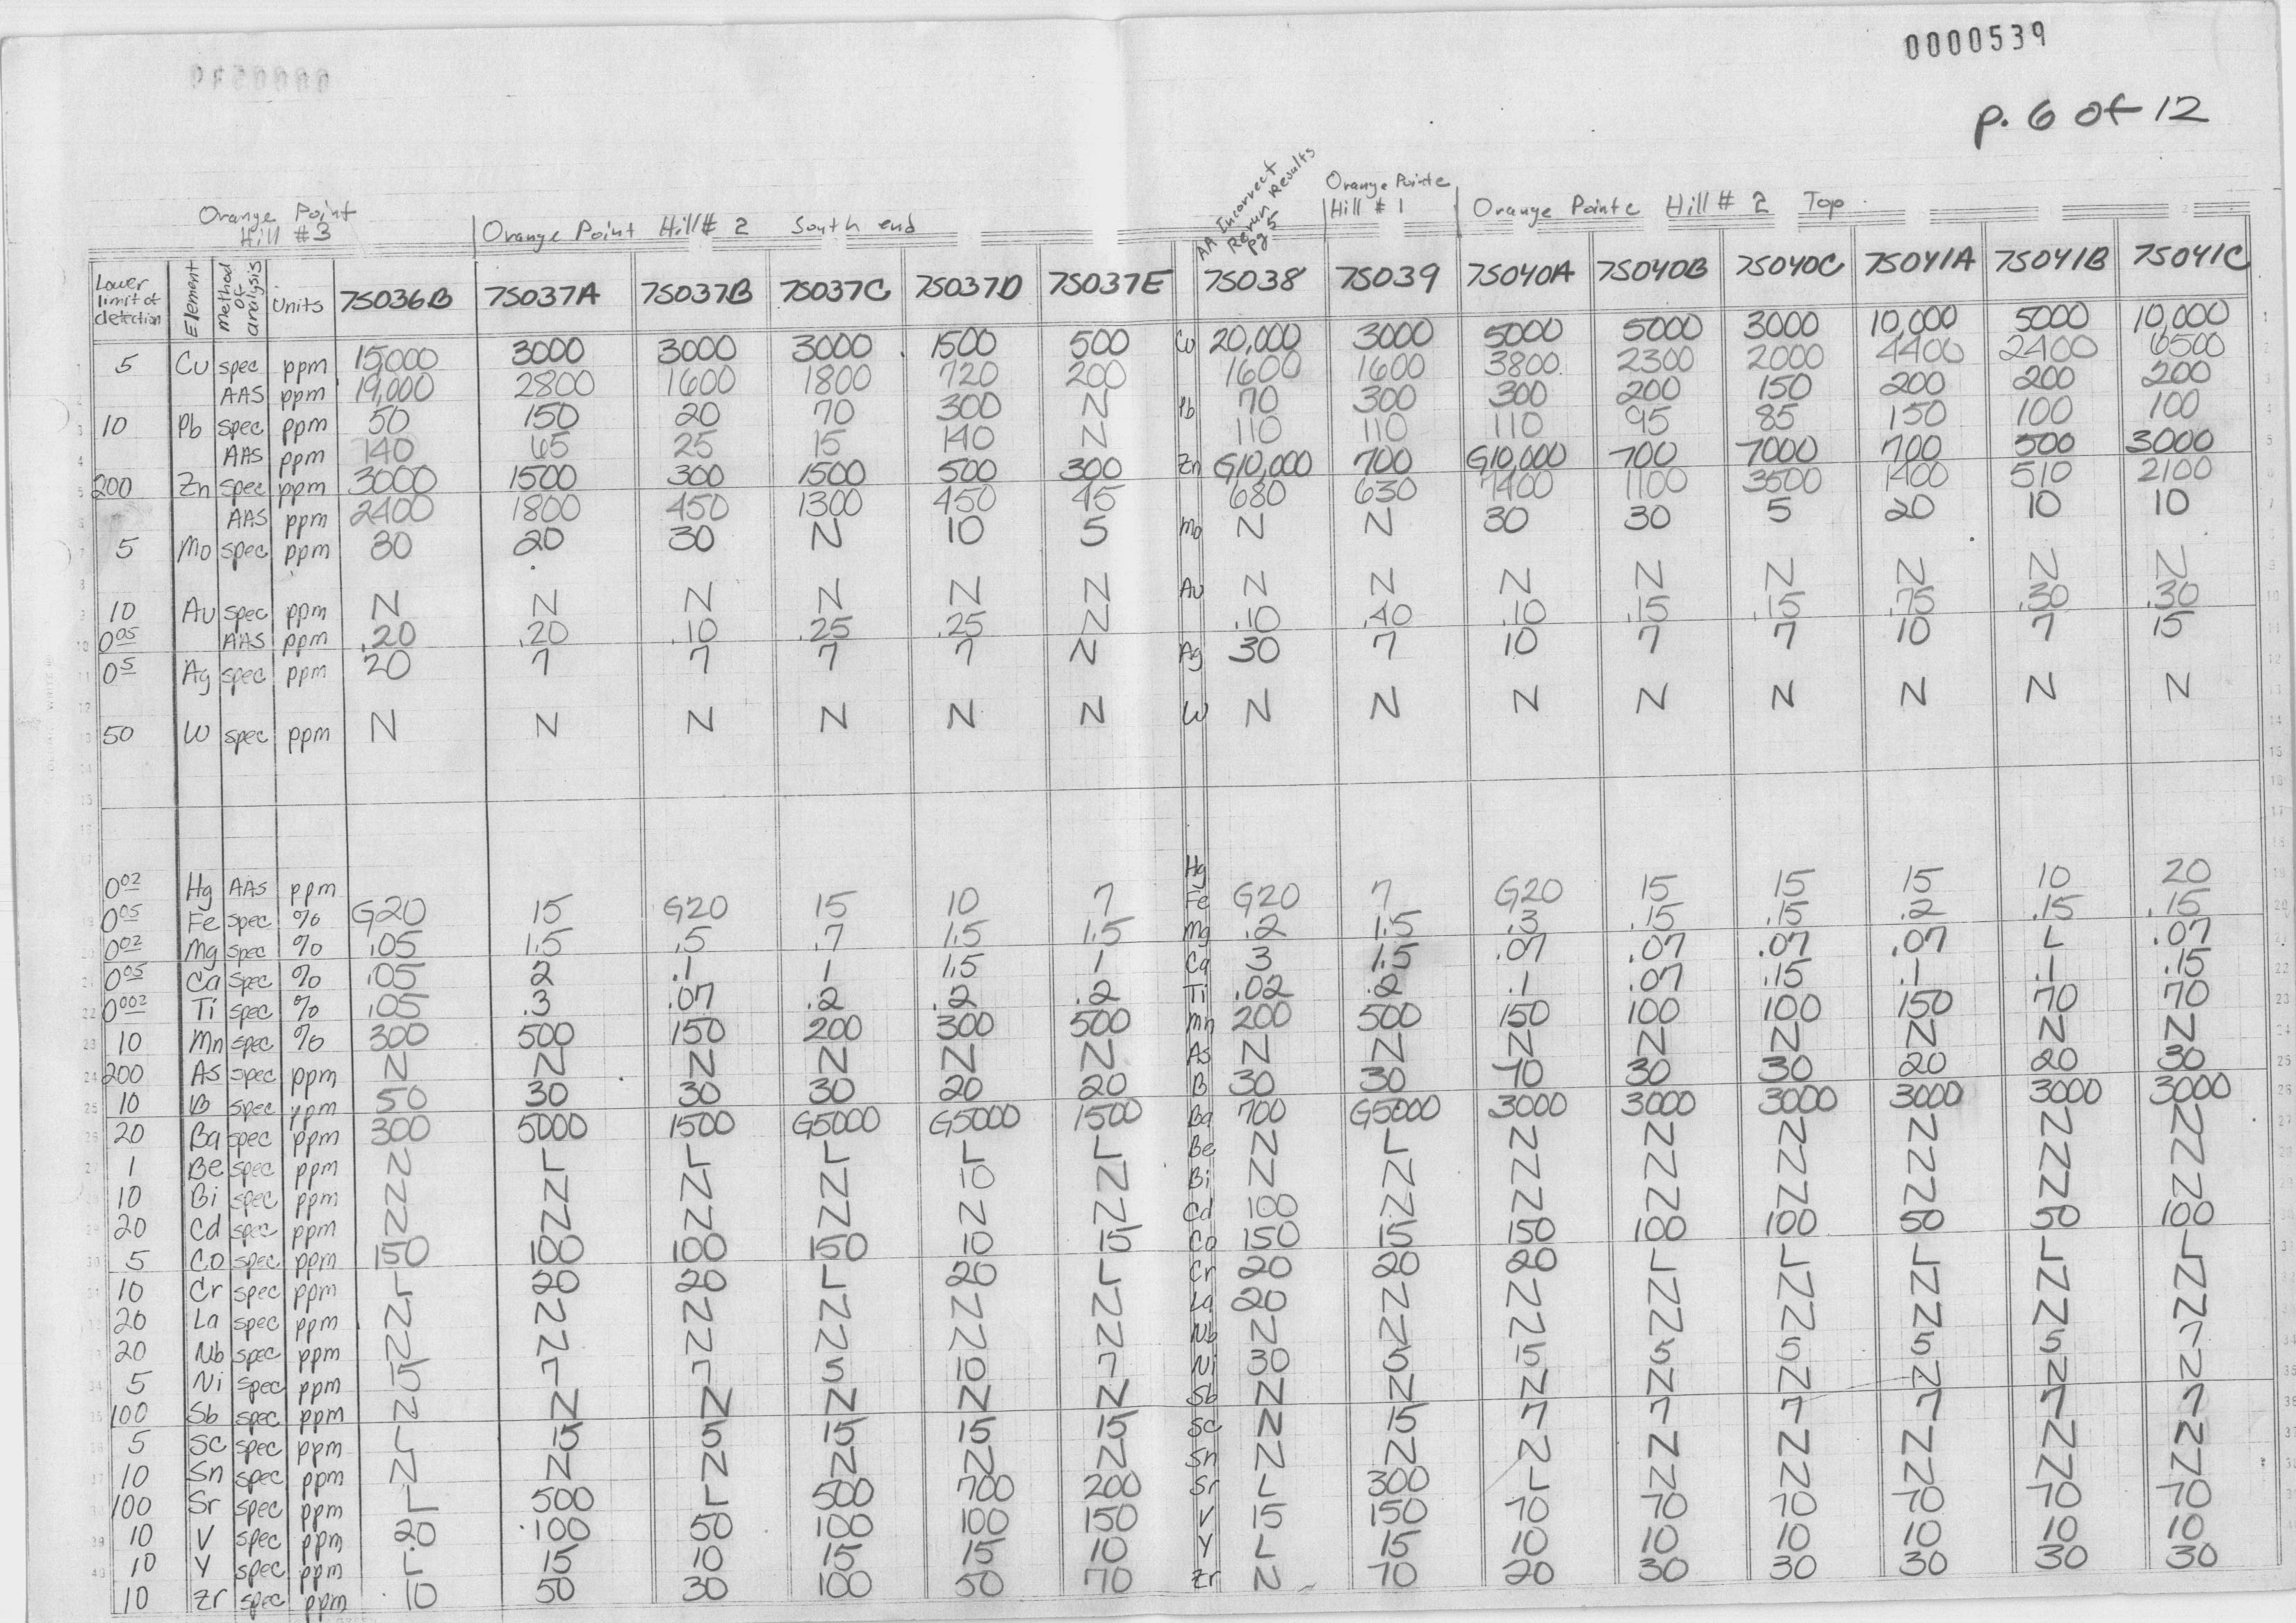 0000539
p. 6 of 12
Orange Point Hill #3
Orange Point Hill # 2 South end
AA Incorrect Rerun Results pg 5
Orange Pointe Hill # 1
Orange Pointe Hill # 2 Top
Lower limit of detection Element Method of analysis Units 7S036B 7S037A 7S037B 7S037C 7S037D 7S037E 7S038 7S039 7S040A 7S040B 7S040C 7S041A 7S041B 7S041C
5 Cu spec ppm 15,000 3000 3000 3000 1500 500 Cu 20,000 3000 5000 5000 3000 10,000 5000 10,000
AAS ppm 19,000 2800 1600 1800 720 200 1600 1600 3800 2300 2000 4400 2400 6500
10 Pb spec ppm 50 150 20 70 300 N Pb 70 300 300 200 150 200 200 200
AAS ppm 140 65 25 15 140 N 110 110 110 95 85 150 100 100
200 Zn spec ppm 3000 1500 300 1500 500 300 Zn G10,000 700 G10,000 700 7000 700 500 3000
AAS ppm 2400 1800 450 1300 450 45 680 630 7400 1100 3500 1400 510 2100
5 Mo spec ppm 30 20 30 N 10 5 Mo N N 30 30 5 20 10 10
10 Au spec ppm N N N N N N Au N N N N N N N N
0.05 AAS ppm .20 .20 .10 .25 .25 N .10 .40 .10 .15 .15 .75 .30 .30
0.5 Ag spec ppm 20 7 7 7 7 N Ag 30 7 10 7 7 10 7 15
50 W spec ppm N N N N N N W N N N N N N N N
0.02 Hg AAS ppm Hg
0.05 Fe spec % G20 15 G20 15 10 7 Fe G20 7 G20 15 15 15 10 20
0.02 Mg spec % .05 1.5 .5 .7 1.5 1.5 Mg .2 1.5 .3 .15 .15 .2 .15 .15
0.05 Ca spec % .05 2 .1 1 1.5 1 Ca 3 1.5 .07 .07 .07 .07 L .07
0.002 Ti spec % .05 .3 .07 .2 .2 .2 Ti .02 .2 .1 .07 .15 .1 .1 .15
10 Mn spec % 300 500 150 200 300 500 Mn 200 500 150 100 100 150 70 70
200 As spec ppm N N N N N N As N N N N N N N N
10 B spec ppm 50 30 30 30 20 20 B 30 30 70 30 30 20 20 30
20 Ba spec ppm 300 5000 1500 G5000 G5000 1500 Ba 700 G5000 3000 3000 3000 3000 3000 3000
1 Be spec ppm N L L L L L Be N L N N N N N N
10 Bi spec ppm N N N N 10 N Bi N N N N N N N N
20 Cd spec ppm N N N N N N Cd 100 N N N N N N N
5 Co spec ppm 150 100 100 150 10 15 Co 150 15 150 100 100 50 50 100
10 Cr spec ppm L 20 20 L 20 L Cr 20 20 20 L L L L L
20 La spec ppm N N N N N N La 20 N N N N N N N
20 Nb spec ppm N N N N N N Nb N N N N N N N N
5 Ni spec ppm 15 7 7 5 10 7 Ni 30 5 15 5 5 5 5 7
100 Sb spec ppm N N N N N N Sb N N N N N N N N
5 Sc spec ppm L 15 5 15 15 15 Sc N 15 7 7 7 7 7 7
10 Sn spec ppm N N N N N N Sn N N N N N N N N
100 Sr spec ppm L 500 L 500 700 200 Sr L 300 L N N N N N
10 V spec ppm 20 100 50 100 100 150 V 15 150 70 70 70 70 70 70
10 Y spec ppm L 15 10 15 15 10 Y L 15 10 10 10 10 10 10
10 Zr spec ppm 10 50 30 100 50 70 Zr N 70 20 30 30 30 30 30